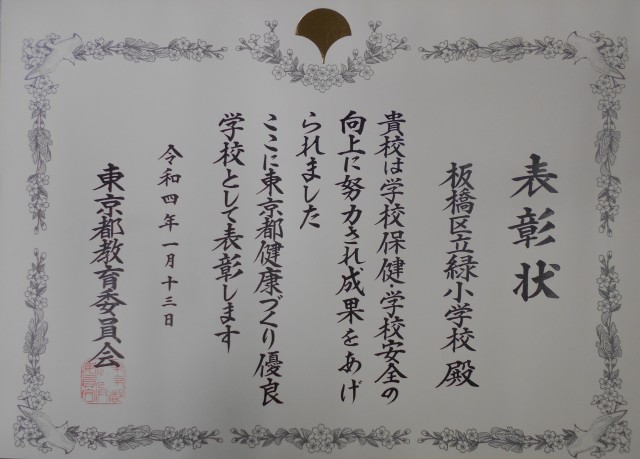 表彰状
板橋区立緑小学校 殿
貴校は学校保健・学校安全の
向上に努力され成果をあげ
られました
ここに東京都健康づくり優良
学校として表彰します
令和四年一月十三日
東京都教育委員会